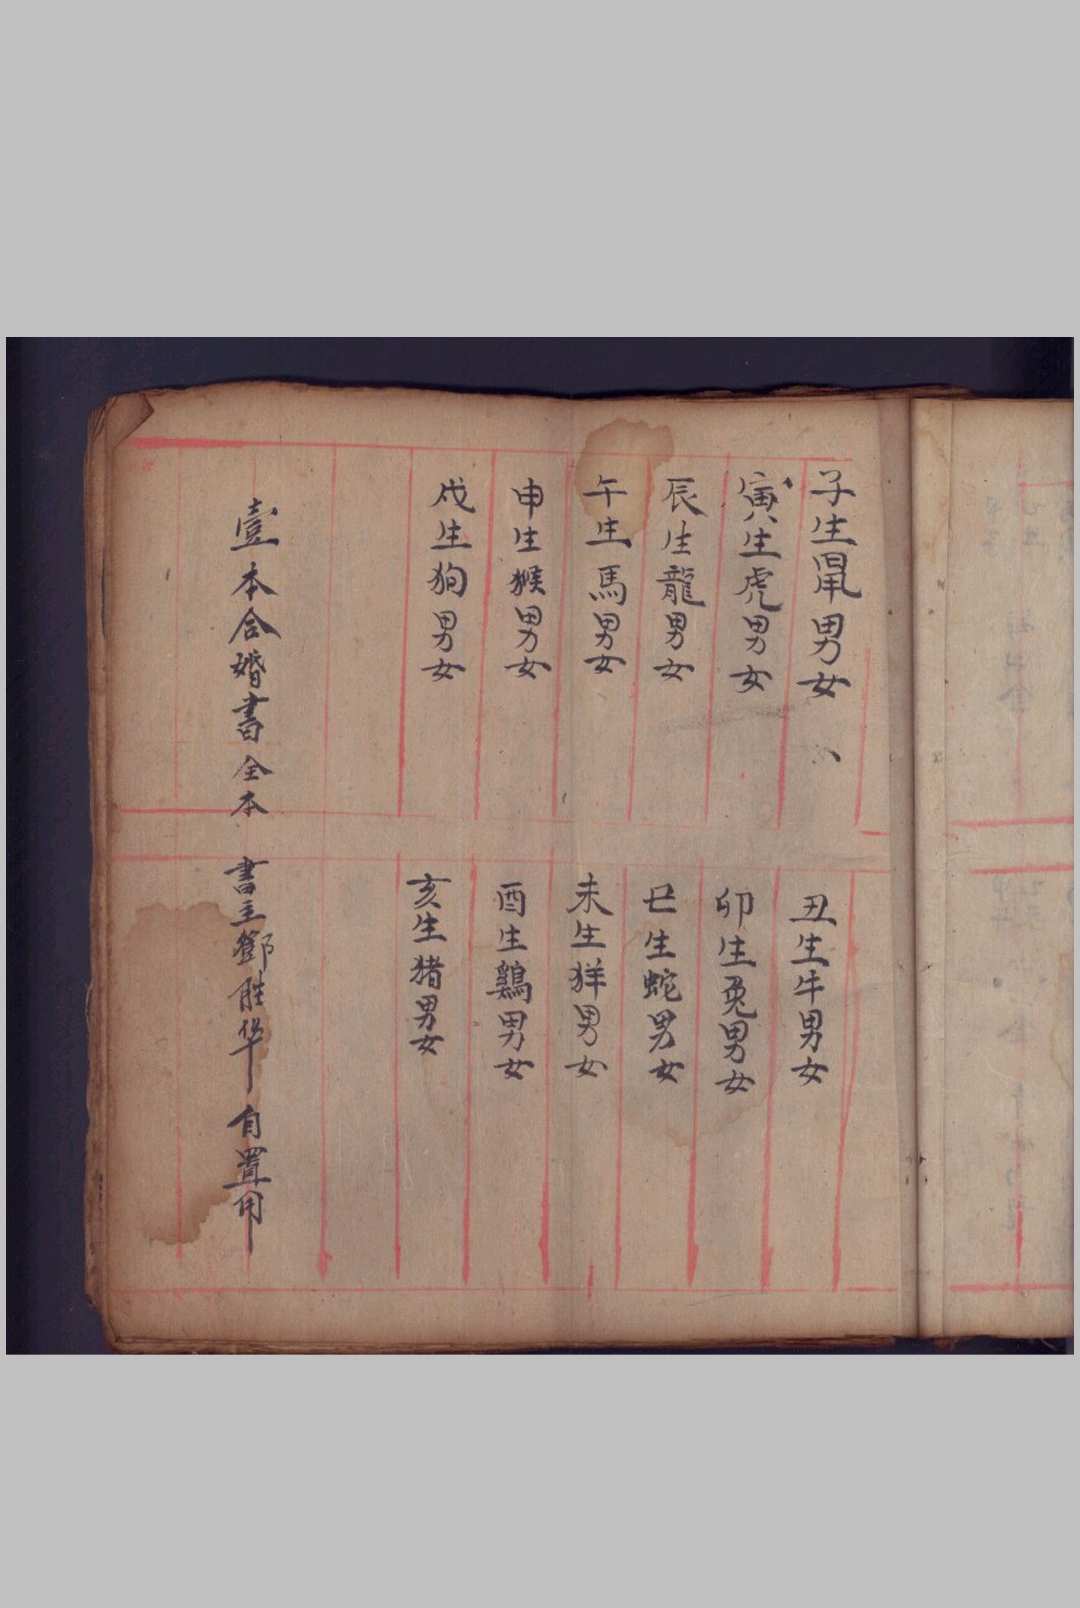 子生鼠男女
丑生牛男女
寅生虎男女
卯生兔男女
辰生龍男女
巳生蛇男女
午生馬男女
未生羊男女
申生猴男女
酉生鷄男女
戌生狗男女
亥生猪男女
壹本合婚書全本 書主鄧胜华自置用